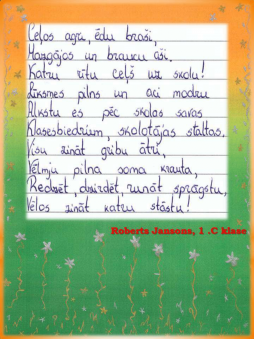 Ceļos agri, ēdu braši,
Mazgājos un braucu āši.
Katru rītu ceļš uz skolu!
Līksmes pilns un aci modru
Alkstu es pēc skolas savas
Klasesbiedriem, skolotājas stāltas.
Visu zināt gribu ātri,
Vēlmju pilna soma krauta,
Redzēt, dzirdēt, runāt sprāgstu,
Vēlos zināt katru stāstu!
Roberts Jansons, 1 .C klase